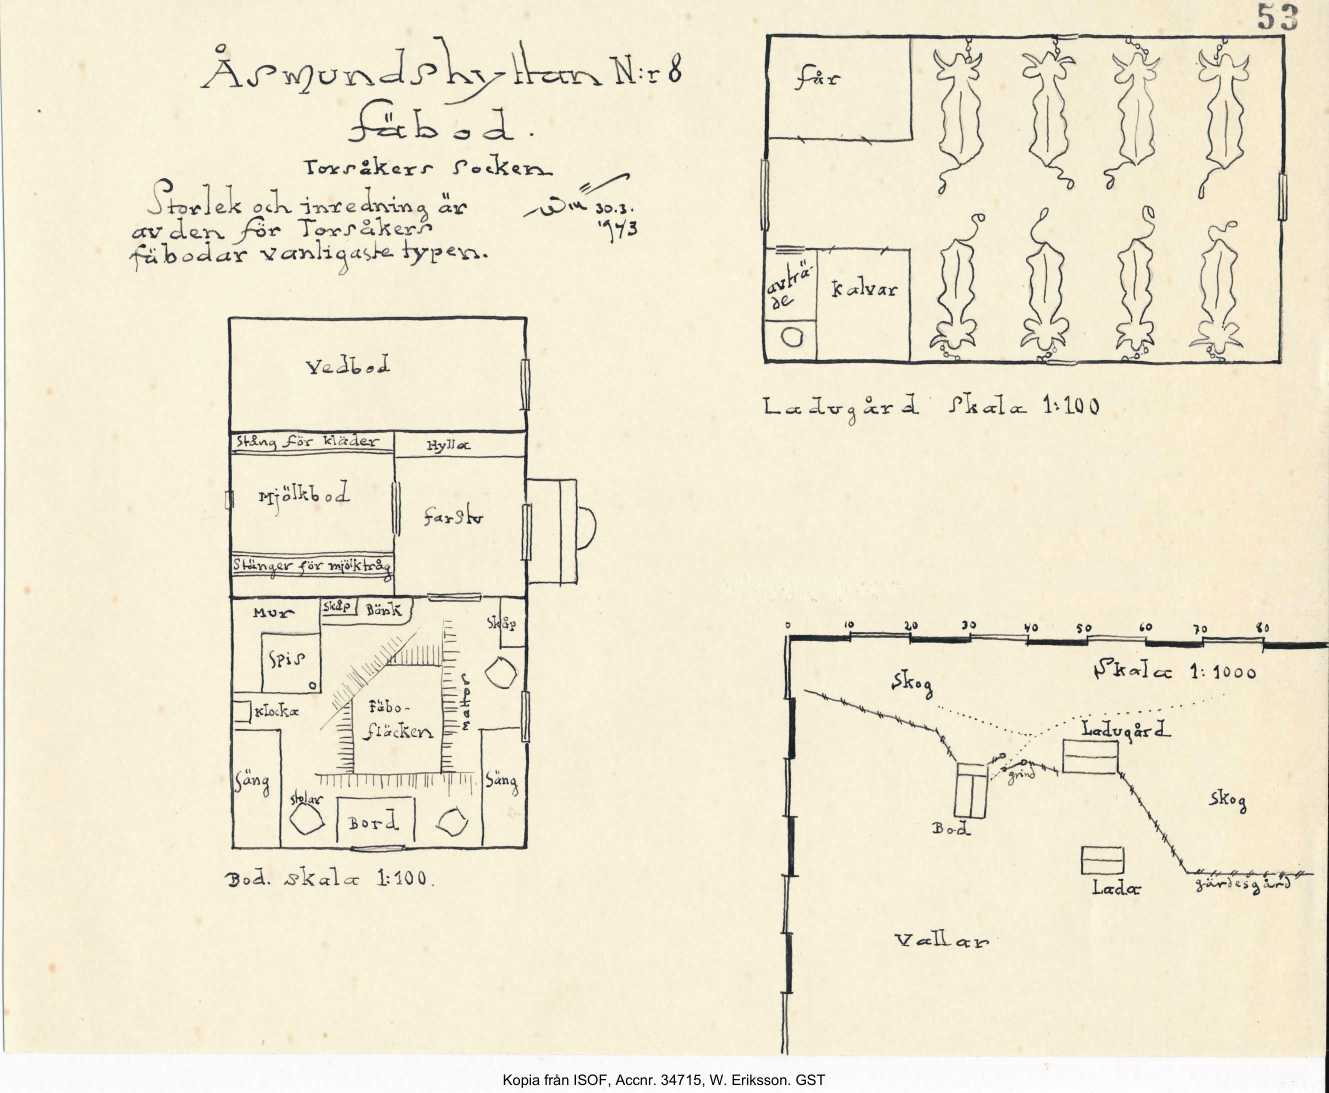 53
Åsmundshyttan N:r 8
fäbod.
Torsåkers socken
Storlek och inredning är
av den för Torsåkers
fäbodar vanligaste typen.
30.3.
1943
får
avträ-
de
kalvar
Ladugård skala 1:100
Vedbod
Stång för kläder
Hylla
Mjölkbod
farstu
Stänger för mjölktråg
Mur
skåp
Bänk
Skåp
Spis
klocka
Fäbo-
fläcken
mattor
Säng
Säng
stolar
Bord
Bod. skala 1:100.
0 10 20 30 40 50 60 70 80
Skala 1:1000
skog
Ladugård
grind
skog
Bod
Lada
gärdesgård
Vallar
Kopia från ISOF, Accnr. 34715, W. Eriksson. GST